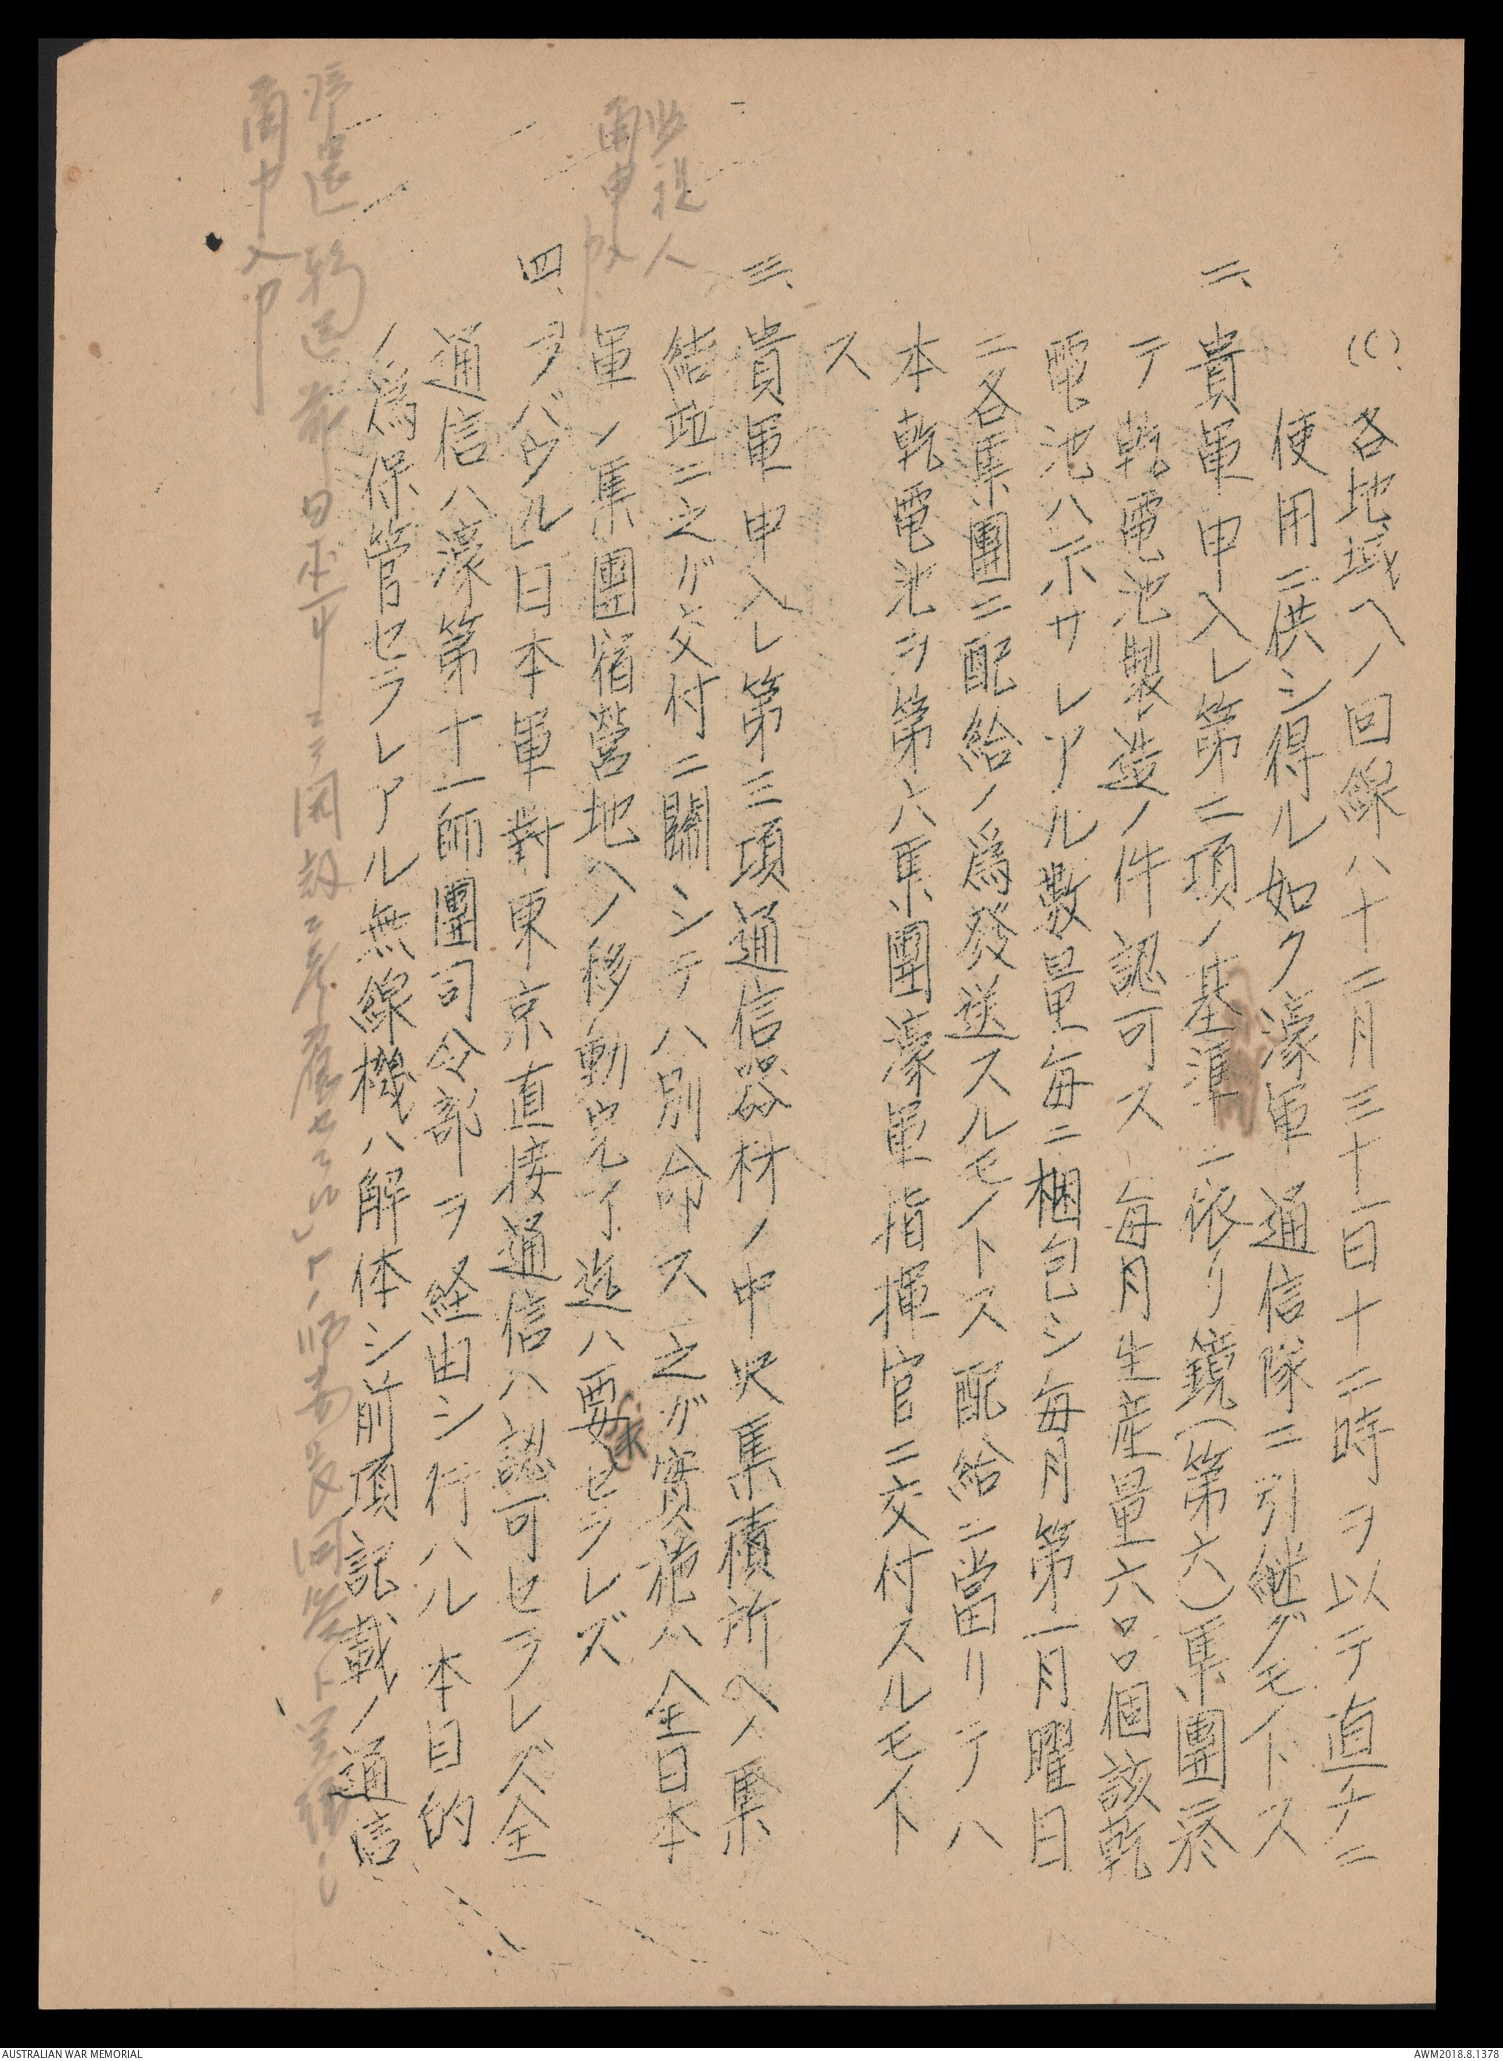 (C)、各地域ヘノ回線ハ十二月三十一日十二時ヲ以テ直チニ
使用ニ供シ得ル如ク濠軍通信隊ニ引継グモノトス
二、貴軍申入レ第二項ノ基準ニ依リ鏡(第六)集團ニ於
テ乾電池製造ノ件認可ス 毎月生産量六〇〇個該乾
電池ハ示サレアル數量毎ニ梱包シ毎月第一月曜日
ニ各集團ニ配給ノ爲發送スルモノトス 配給ニ當リテハ
本乾電池ヲ第六集團濠軍指揮官ニ交付スルモノト
ス
三、貴軍申入レ第三項通信器材ノ中央集積所ヘノ集
結竝ニ之ガ交付ニ關シテハ別命ス 之ガ實施ハ全日本
軍ノ集團宿營地ヘノ移動完了迄ハ要セラレズ
四、ラバウル日本軍對東京直接通信ハ認可セラレズ 全
通信ハ濠第十一師團司令部ヲ経由シ行ハル 本目的
ノ爲保管セラレアル無線機ハ解体シ前項記載ノ通信